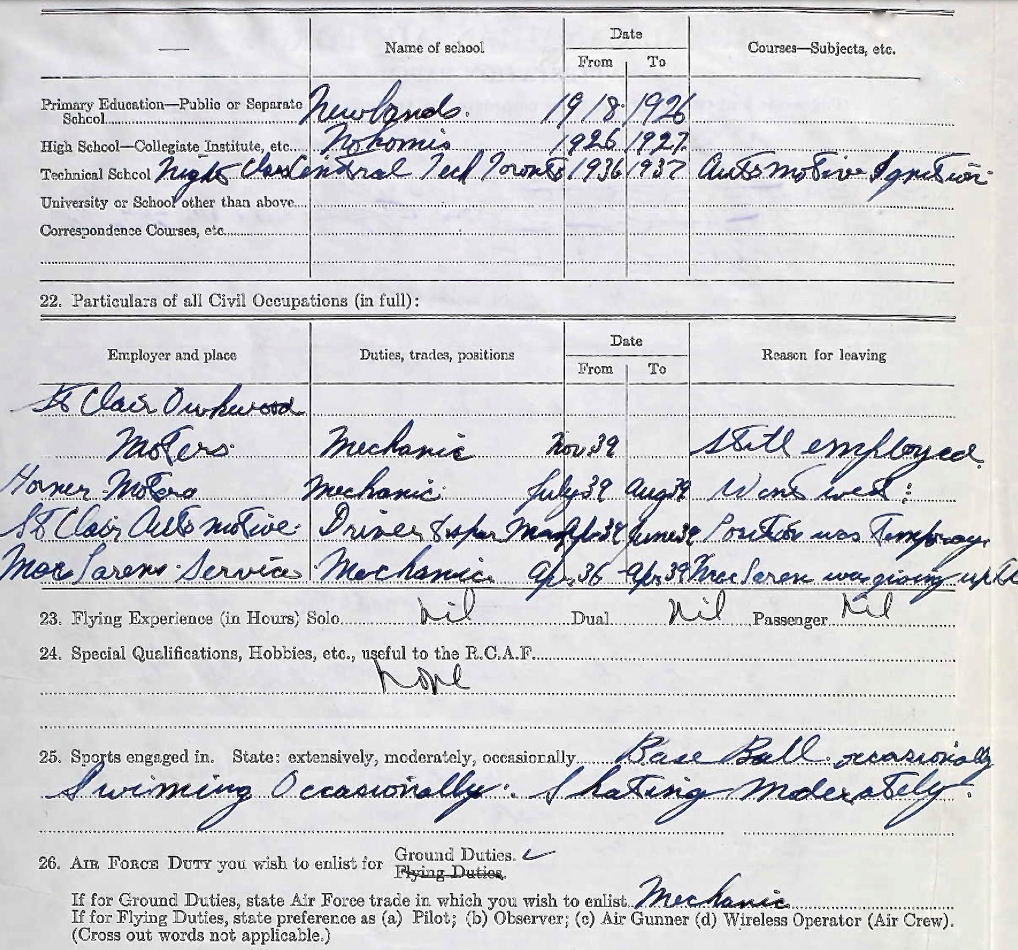 — Name of school Date Courses—Subjects, etc.
From To
Primary Education—Public or Separate
School Newlands. 1918 1926
High School—Collegiate Institute, etc. Nokomis 1926 1927
Technical School Night Class Central Tech Toronto 1936 1937 Automotive Ignition
University or School other than above
Correspondence Courses, etc.
22. Particulars of all Civil Occupations (in full):
Employer and place Duties, trades, positions Date Reason for leaving
From To
St Clair
Moters Mechanic Nov 39 still employed
Horner Moters Mechanic July 39 Aug 39 Went west
St Clair Automotive Driver June 39 Position was
MacLarens Service Mechanic Apr 36 Apr 39 MacLaren was giving up
23. Flying Experience (in Hours) Solo nil Dual nil Passenger nil
24. Special Qualifications, Hobbies, etc., useful to the R.C.A.F.
none
25. Sports engaged in. State: extensively, moderately, occasionally Base Ball occasionally
Swiming Occasionally. Skating Moderately.
26. AIR FORCE DUTY you wish to enlist for Ground Duties. ✓
Flying Duties.
If for Ground Duties, state Air Force trade in which you wish to enlist Mechanic
If for Flying Duties, state preference as (a) Pilot; (b) Observer; (c) Air Gunner (d) Wireless Operator (Air Crew).
(Cross out words not applicable.)